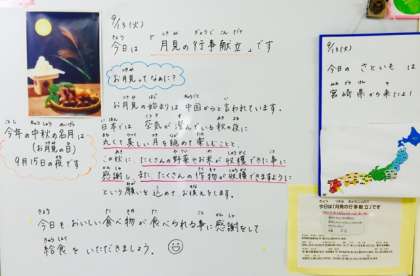 9/13(火)
今日は「月見の行事献立」です
お月見ってなぁに?
お月見の始まりは中国からと言われています。
日本では 空気が澄んでいる秋の夜に
丸くて美しい月を眺めて楽しむことと
この秋に たくさんの野菜やお米が収穫できた事に
感謝し、また たくさんの作物が収穫できますように
という願いを込めて お供えをします。
今年の中秋の名月は
(お月見の日)
9月15日の夜です
今日もおいしい食べ物が食べられる事に感謝をして
給食をいただきましょう。
9/13(火)
今日の さといもは
宮崎県から来たよ!
今日は「月見の行事献立」です